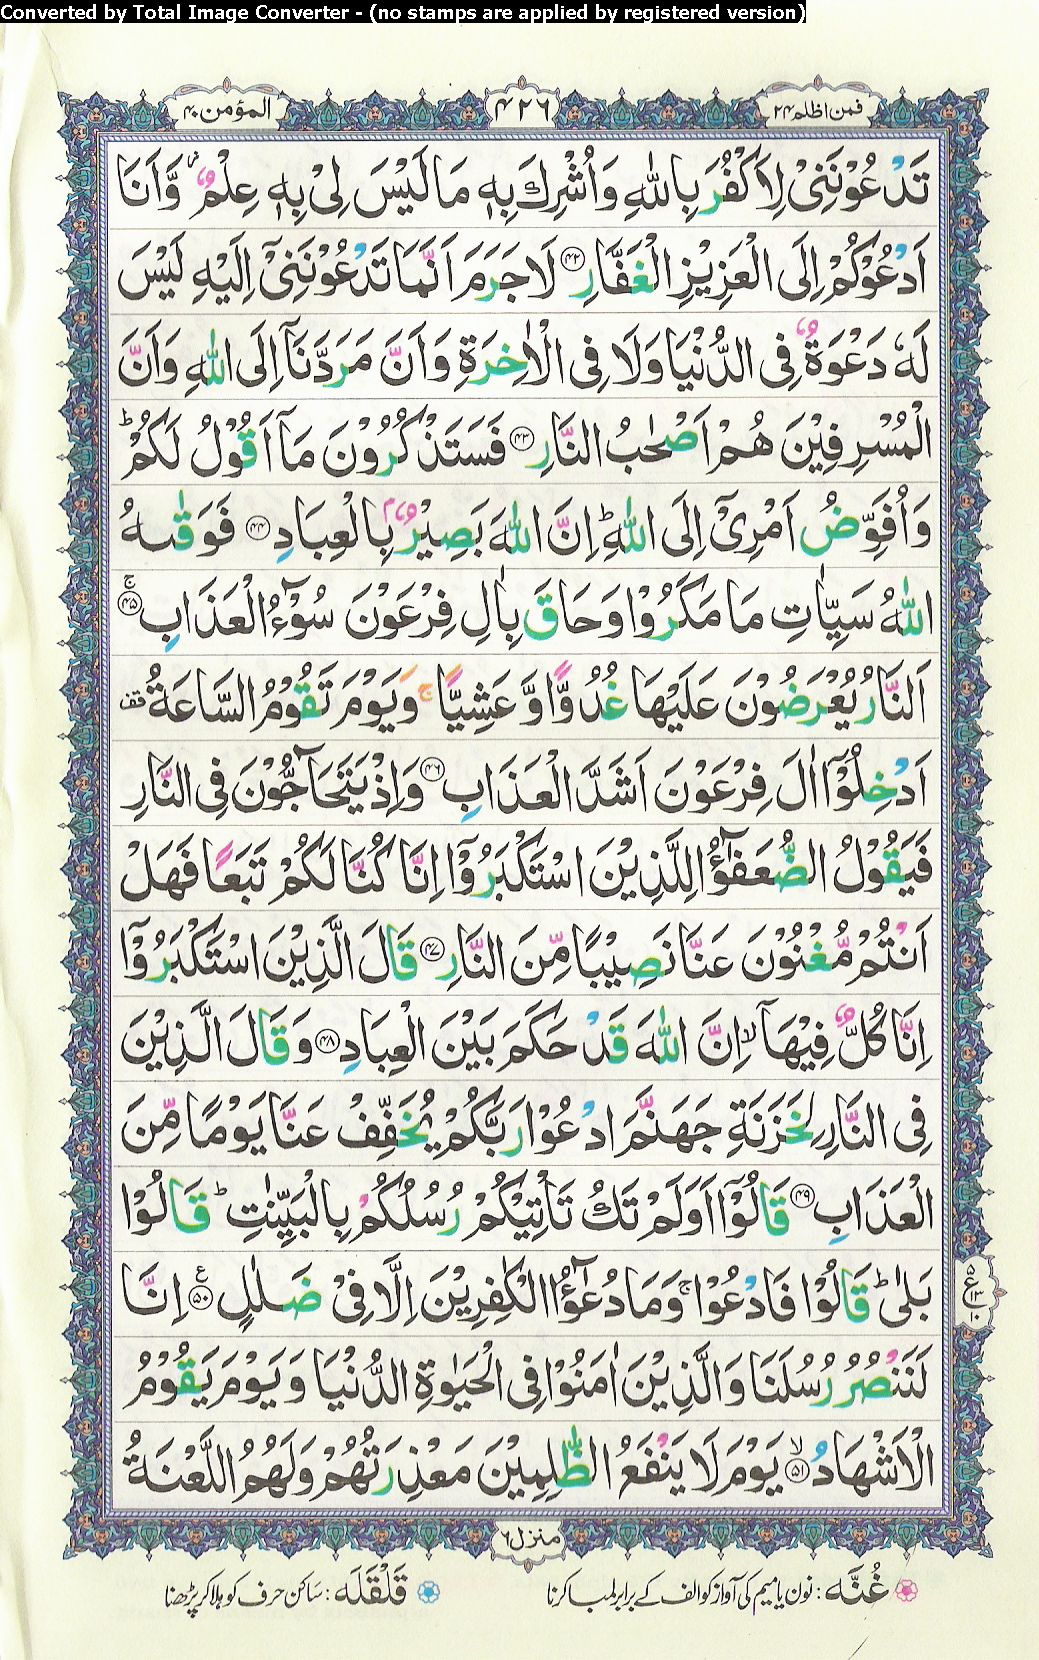 Converted by Total Image Converter - (no stamps are applied by registered version)
فمن اظلم ۲۴
۴۲۶
المؤمن ۴۰
تَدْعُوْنَنِیْ لِاَكْفُرَ بِاللّٰهِ وَاُشْرِكَ بِهٖ مَا لَیْسَ لِیْ بِهٖ عِلْمٌ ۫ وَّاَنَا
اَدْعُوْكُمْ اِلَی الْعَزِیْزِ الْغَفَّارِ ﴿۴۲﴾ لَا جَرَمَ اَنَّمَا تَدْعُوْنَنِیْۤ اِلَیْهِ لَیْسَ
لَهٗ دَعْوَةٌ فِی الدُّنْیَا وَلَا فِی الْاٰخِرَةِ وَاَنَّ مَرَدَّنَاۤ اِلَی اللّٰهِ وَاَنَّ
الْمُسْرِفِیْنَ هُمْ اَصْحٰبُ النَّارِ ﴿۴۳﴾ فَسَتَذْكُرُوْنَ مَاۤ اَقُوْلُ لَكُمْ ؕ
وَاُفَوِّضُ اَمْرِیْۤ اِلَی اللّٰهِ ؕ اِنَّ اللّٰهَ بَصِیْرٌۢ بِالْعِبَادِ ﴿۴۴﴾ فَوَقٰىهُ
اللّٰهُ سَیِّاٰتِ مَا مَكَرُوْا وَحَاقَ بِاٰلِ فِرْعَوْنَ سُوْٓءُ الْعَذَابِ ﴿۴۵﴾ ۚ
اَلنَّارُ یُعْرَضُوْنَ عَلَیْهَا غُدُوًّا وَّ عَشِیًّا ۚ وَیَوْمَ تَقُوْمُ السَّاعَةُ قف
اَدْخِلُوْۤا اٰلَ فِرْعَوْنَ اَشَدَّ الْعَذَابِ ﴿۴۶﴾ وَاِذْ یَتَحَآجُّوْنَ فِی النَّارِ
فَیَقُوْلُ الضُّعَفٰٓؤُا لِلَّذِیْنَ اسْتَكْبَرُوْۤا اِنَّا كُنَّا لَكُمْ تَبَعًا فَهَلْ
اَنْتُمْ مُّغْنُوْنَ عَنَّا نَصِیْبًا مِّنَ النَّارِ ﴿۴۷﴾ قَالَ الَّذِیْنَ اسْتَكْبَرُوْۤا
اِنَّا كُلٌّ فِیْهَاۤ ۙ اِنَّ اللّٰهَ قَدْ حَكَمَ بَیْنَ الْعِبَادِ ﴿۴۸﴾ وَقَالَ الَّذِیْنَ
فِی النَّارِ لِخَزَنَةِ جَهَنَّمَ ادْعُوْا رَبَّكُمْ یُخَفِّفْ عَنَّا یَوْمًا مِّنَ
الْعَذَابِ ﴿۴۹﴾ قَالُوْۤا اَوَلَمْ تَكُ تَاْتِیْكُمْ رُسُلُكُمْ بِالْبَیِّنٰتِ ؕ قَالُوْا
بَلٰی ؕ قَالُوْا فَادْعُوْا ۚ وَمَا دُعٰٓؤُا الْكٰفِرِیْنَ اِلَّا فِیْ ضَلٰلٍ ﴿۵۰﴾ ع اِنَّا
۵ ع ۱۳ ۱۰
لَنَنْصُرُ رُسُلَنَا وَالَّذِیْنَ اٰمَنُوْا فِی الْحَیٰوةِ الدُّنْیَا وَیَوْمَ یَقُوْمُ
الْاَشْهَادُ ﴿۵۱﴾ ۙ یَوْمَ لَا یَنْفَعُ الظّٰلِمِیْنَ مَعْذِرَتُهُمْ وَلَهُمُ اللَّعْنَةُ
منزل ۶
غُنَّه : نون یا میم کی آواز کو الف کے برابر لمبا کرنا
قَلْقَلَه : ساکن حرف کو ہلا کر پڑھنا